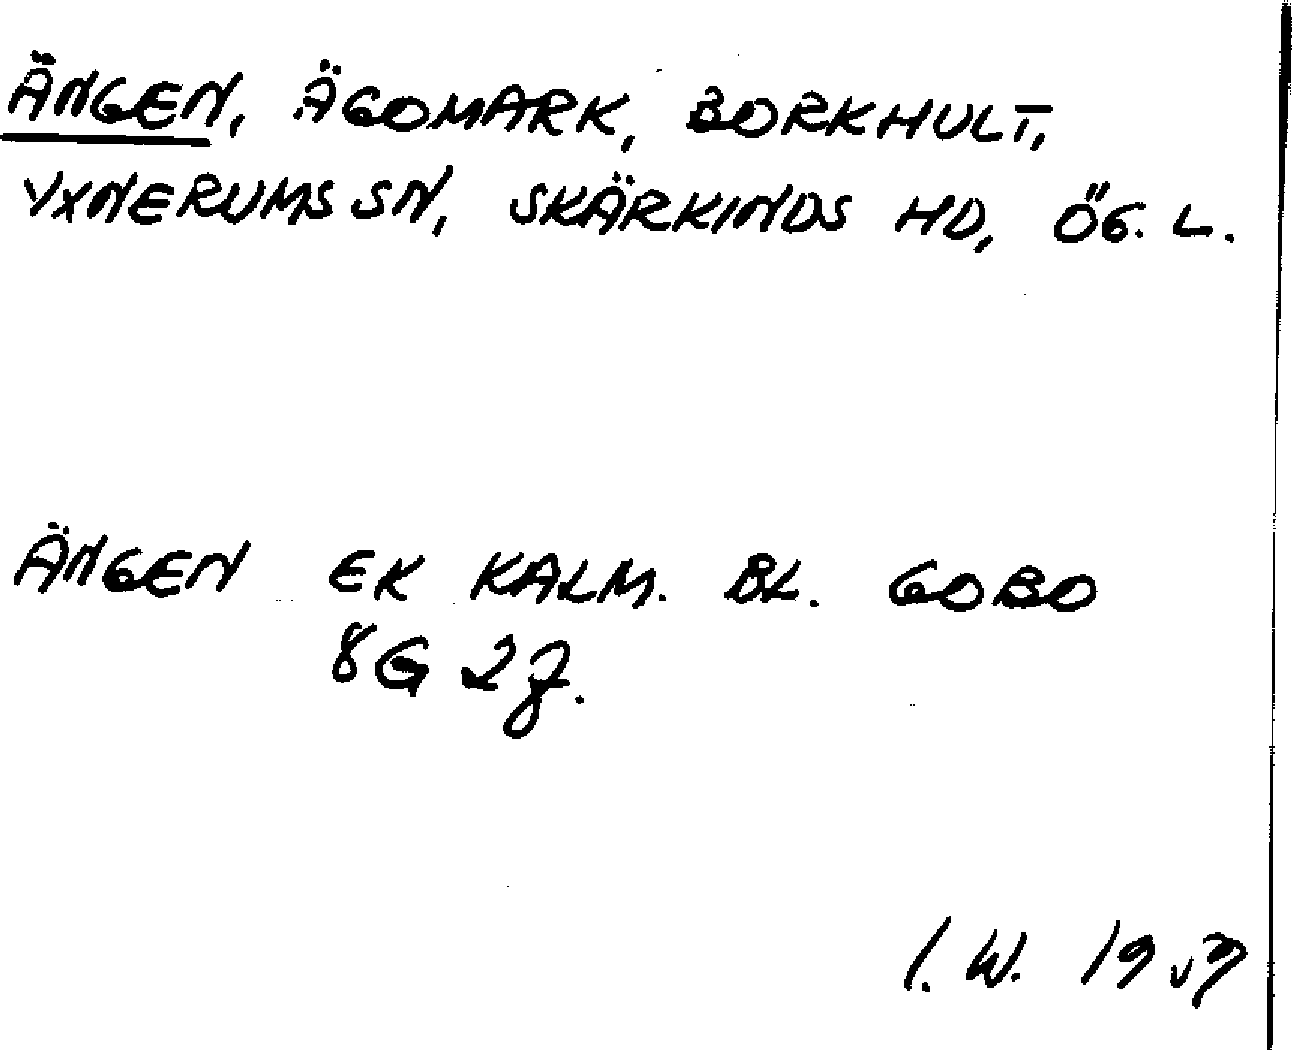 ÄNGEN, ÄGOMARK, BORKHULT,
YXNERUMS SN, SKÄRKINDS HD, ÖG. L.
ÄNGEN EK KALM. BL. GOBO
8G 2J.
I. W. 1959